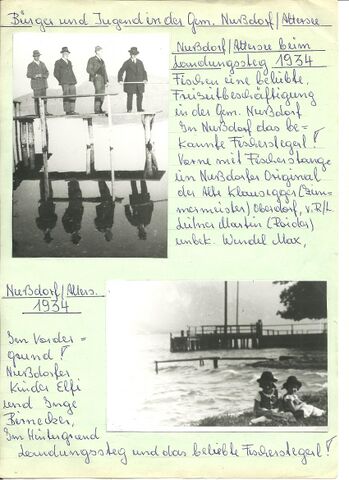 Bürger und Jugend in der Gem. Nußdorf/Attersee
Nußdorf/Attersee beim
Landungssteg 1934
Fischen eine beliebte,
Freizeitbeschäftigung
in der Gem. Nußdorf
In Nußdorf das be=
kannte Fischerstegerl!
Vorne mit Fischerstange
ein Nußdorfer Original
der Alte Klausegger (Zim=
mermeister) Oberdorf, v.R/L
Leitner Martin
unbek. Wendel Max,
Nußdorf/Atters.
1934
Im Vorder=
grund!
Nußdorfer
Kinder Elfi
und Inge
Birnecker,
Im Hintergrund
Landungssteg und das beliebte Fischerstegerl!